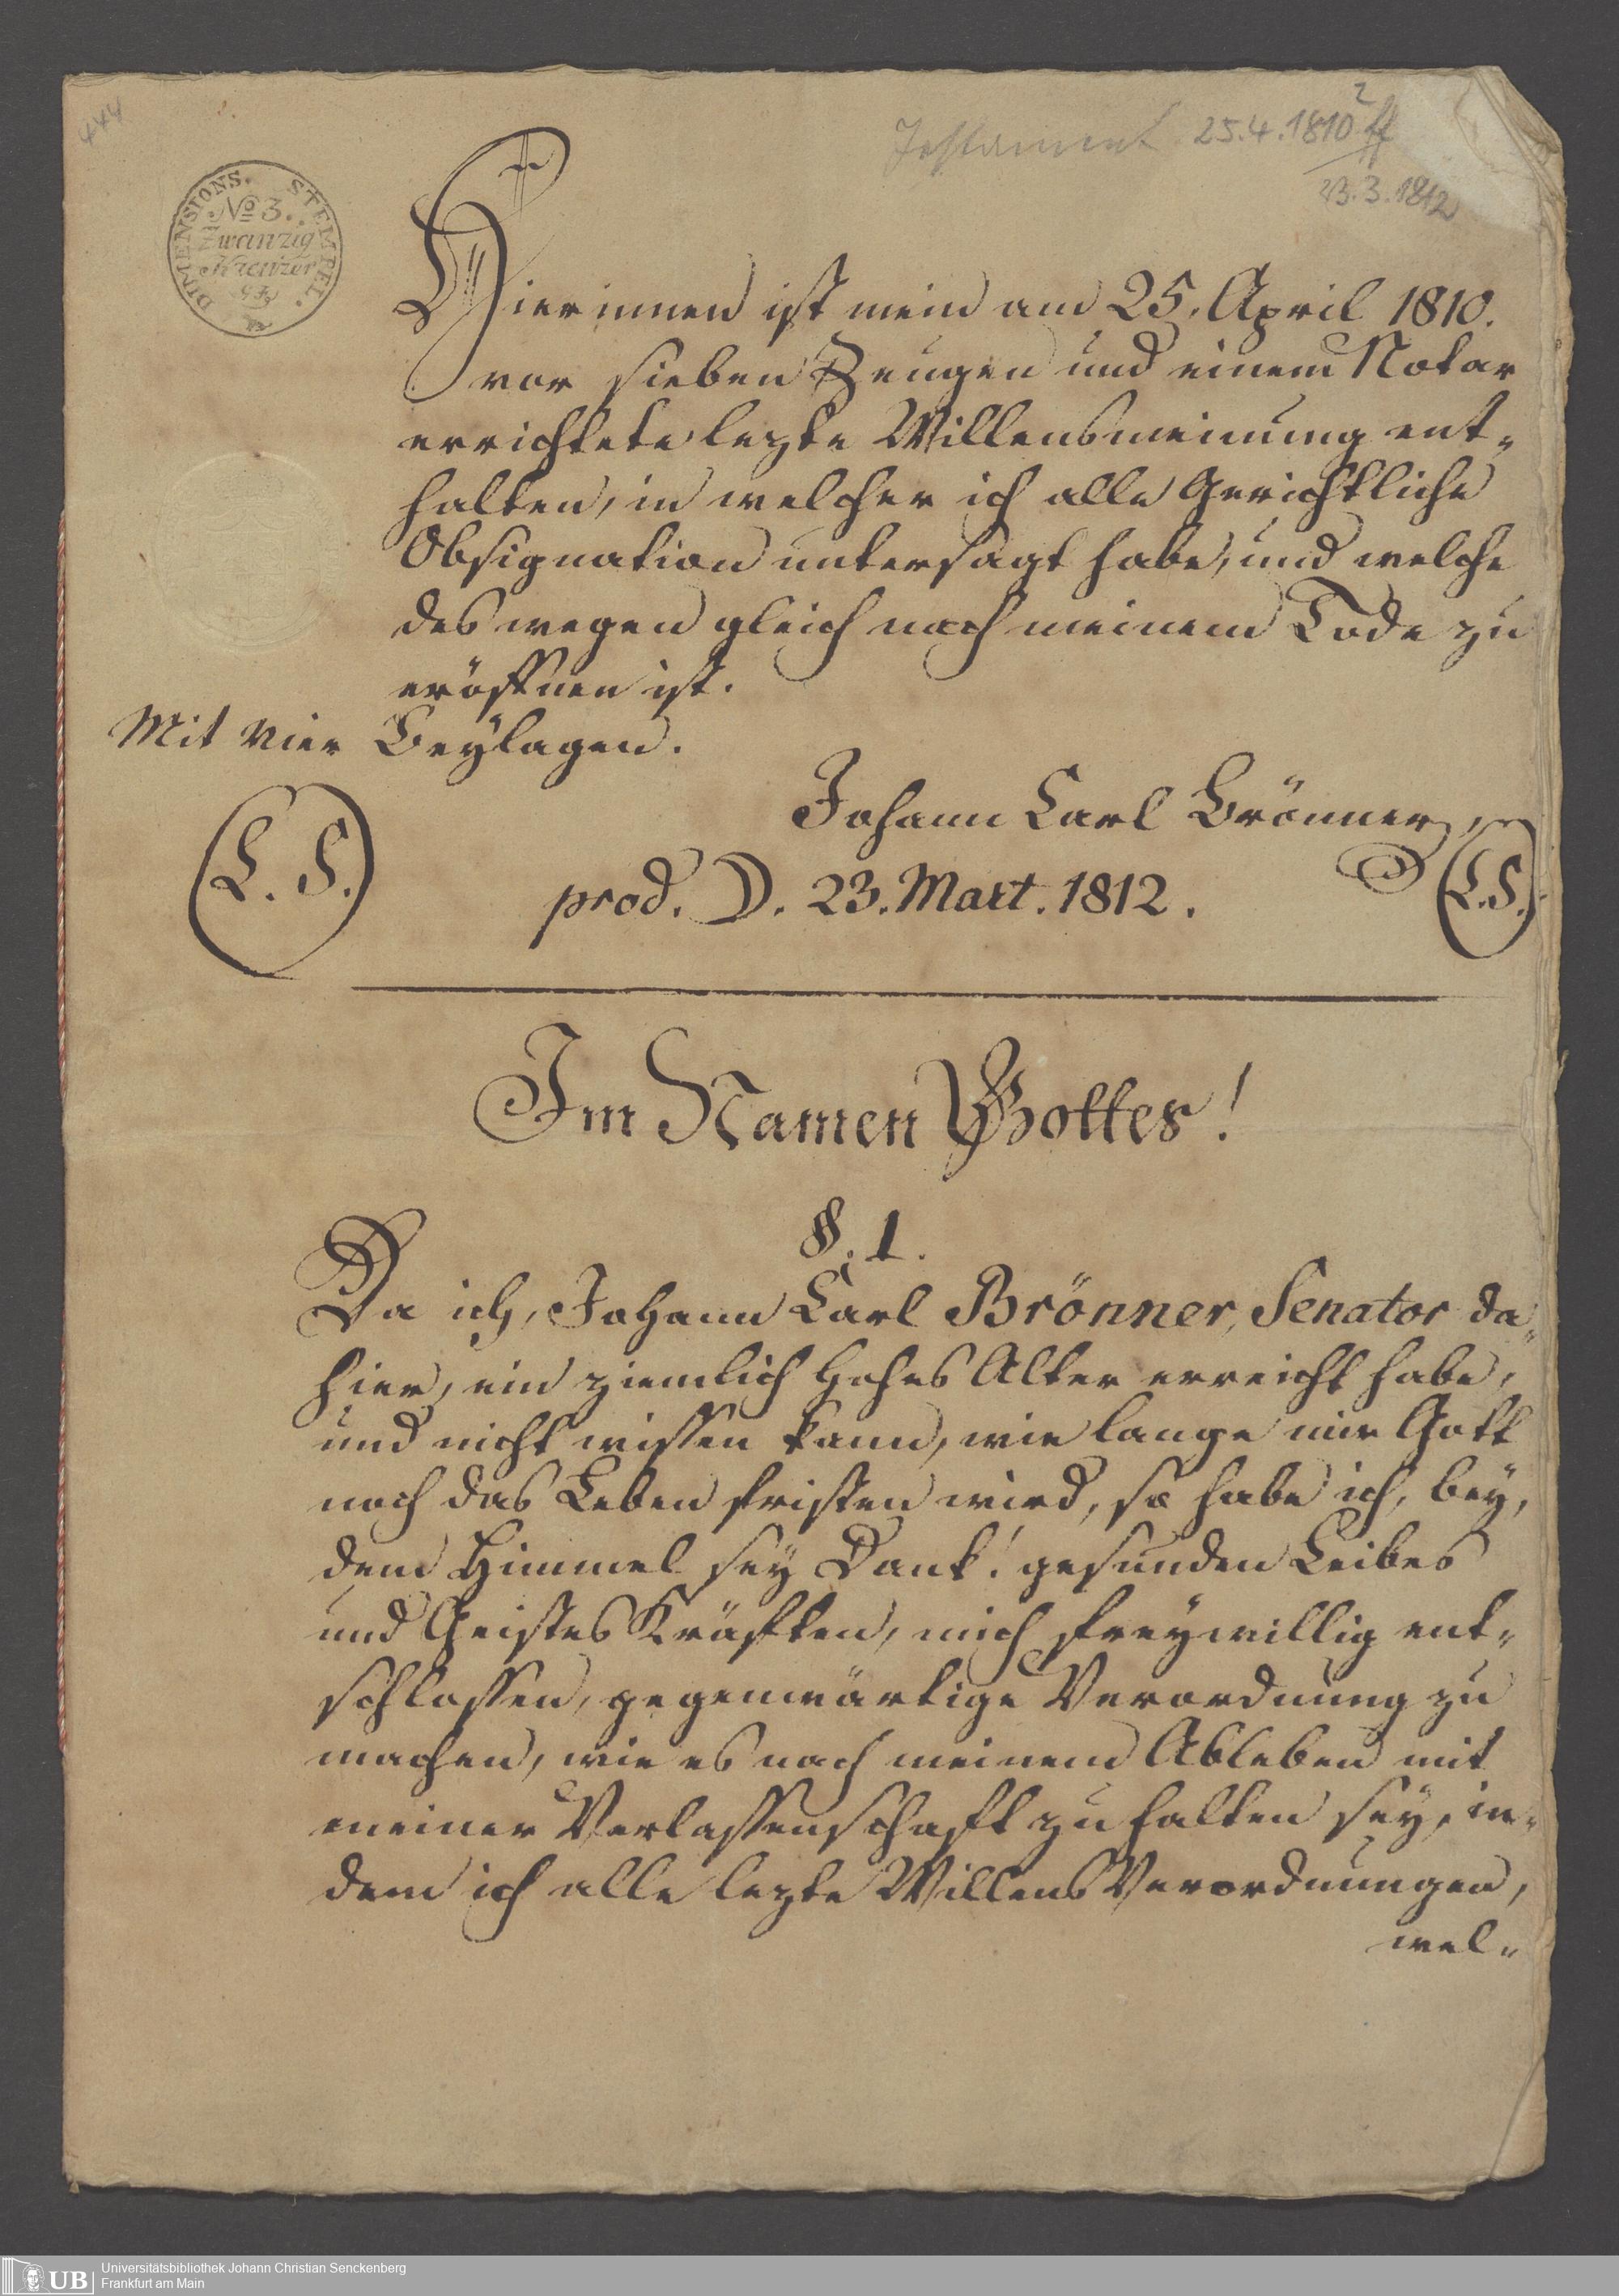 444
Testament 25.4.1810 ff
2
23.3.1812
DIMENSIONS. STEMPEL.
No 3.
Zwanzig
Kreuzer
Hierinnen ist mein am 25. April 1810.
vor sieben Zeugen und einem Notar
errichtete lezte Willensmeinung ent-
halten, in welcher ich alle Gerichtliche
Obsignation untersagt habe, und welche
des wegen gleich nach meinem Tode zu
eröffnen ist.
Mit vier Beylagen.
Johann Carl Brönner,
(L. S.)
prod. D. 23. Mart. 1812.
(L.S.)
Im Namen Gottes!
§. 1.
Da ich, Johann Carl Brönner, Senator da-
hier, ein ziemlich hohes Alter erreicht habe,
und nicht wissen kann, wie lange mir Gott
noch das Leben fristen wird, so habe ich, bey,
dem Himmel sey Dank! gesunden Leibes
und Geistes Kräften, mich freywillig ent-
schlossen, gegenwärtige Verordnung zu
machen, wie es nach meinem Ableben mit
meiner Verlassenschaft zu halten sey, in-
dem ich alle lezte Willens Verordnungen,
wel-
UB
Universitätsbibliothek Johann Christian Senckenberg
Frankfurt am Main